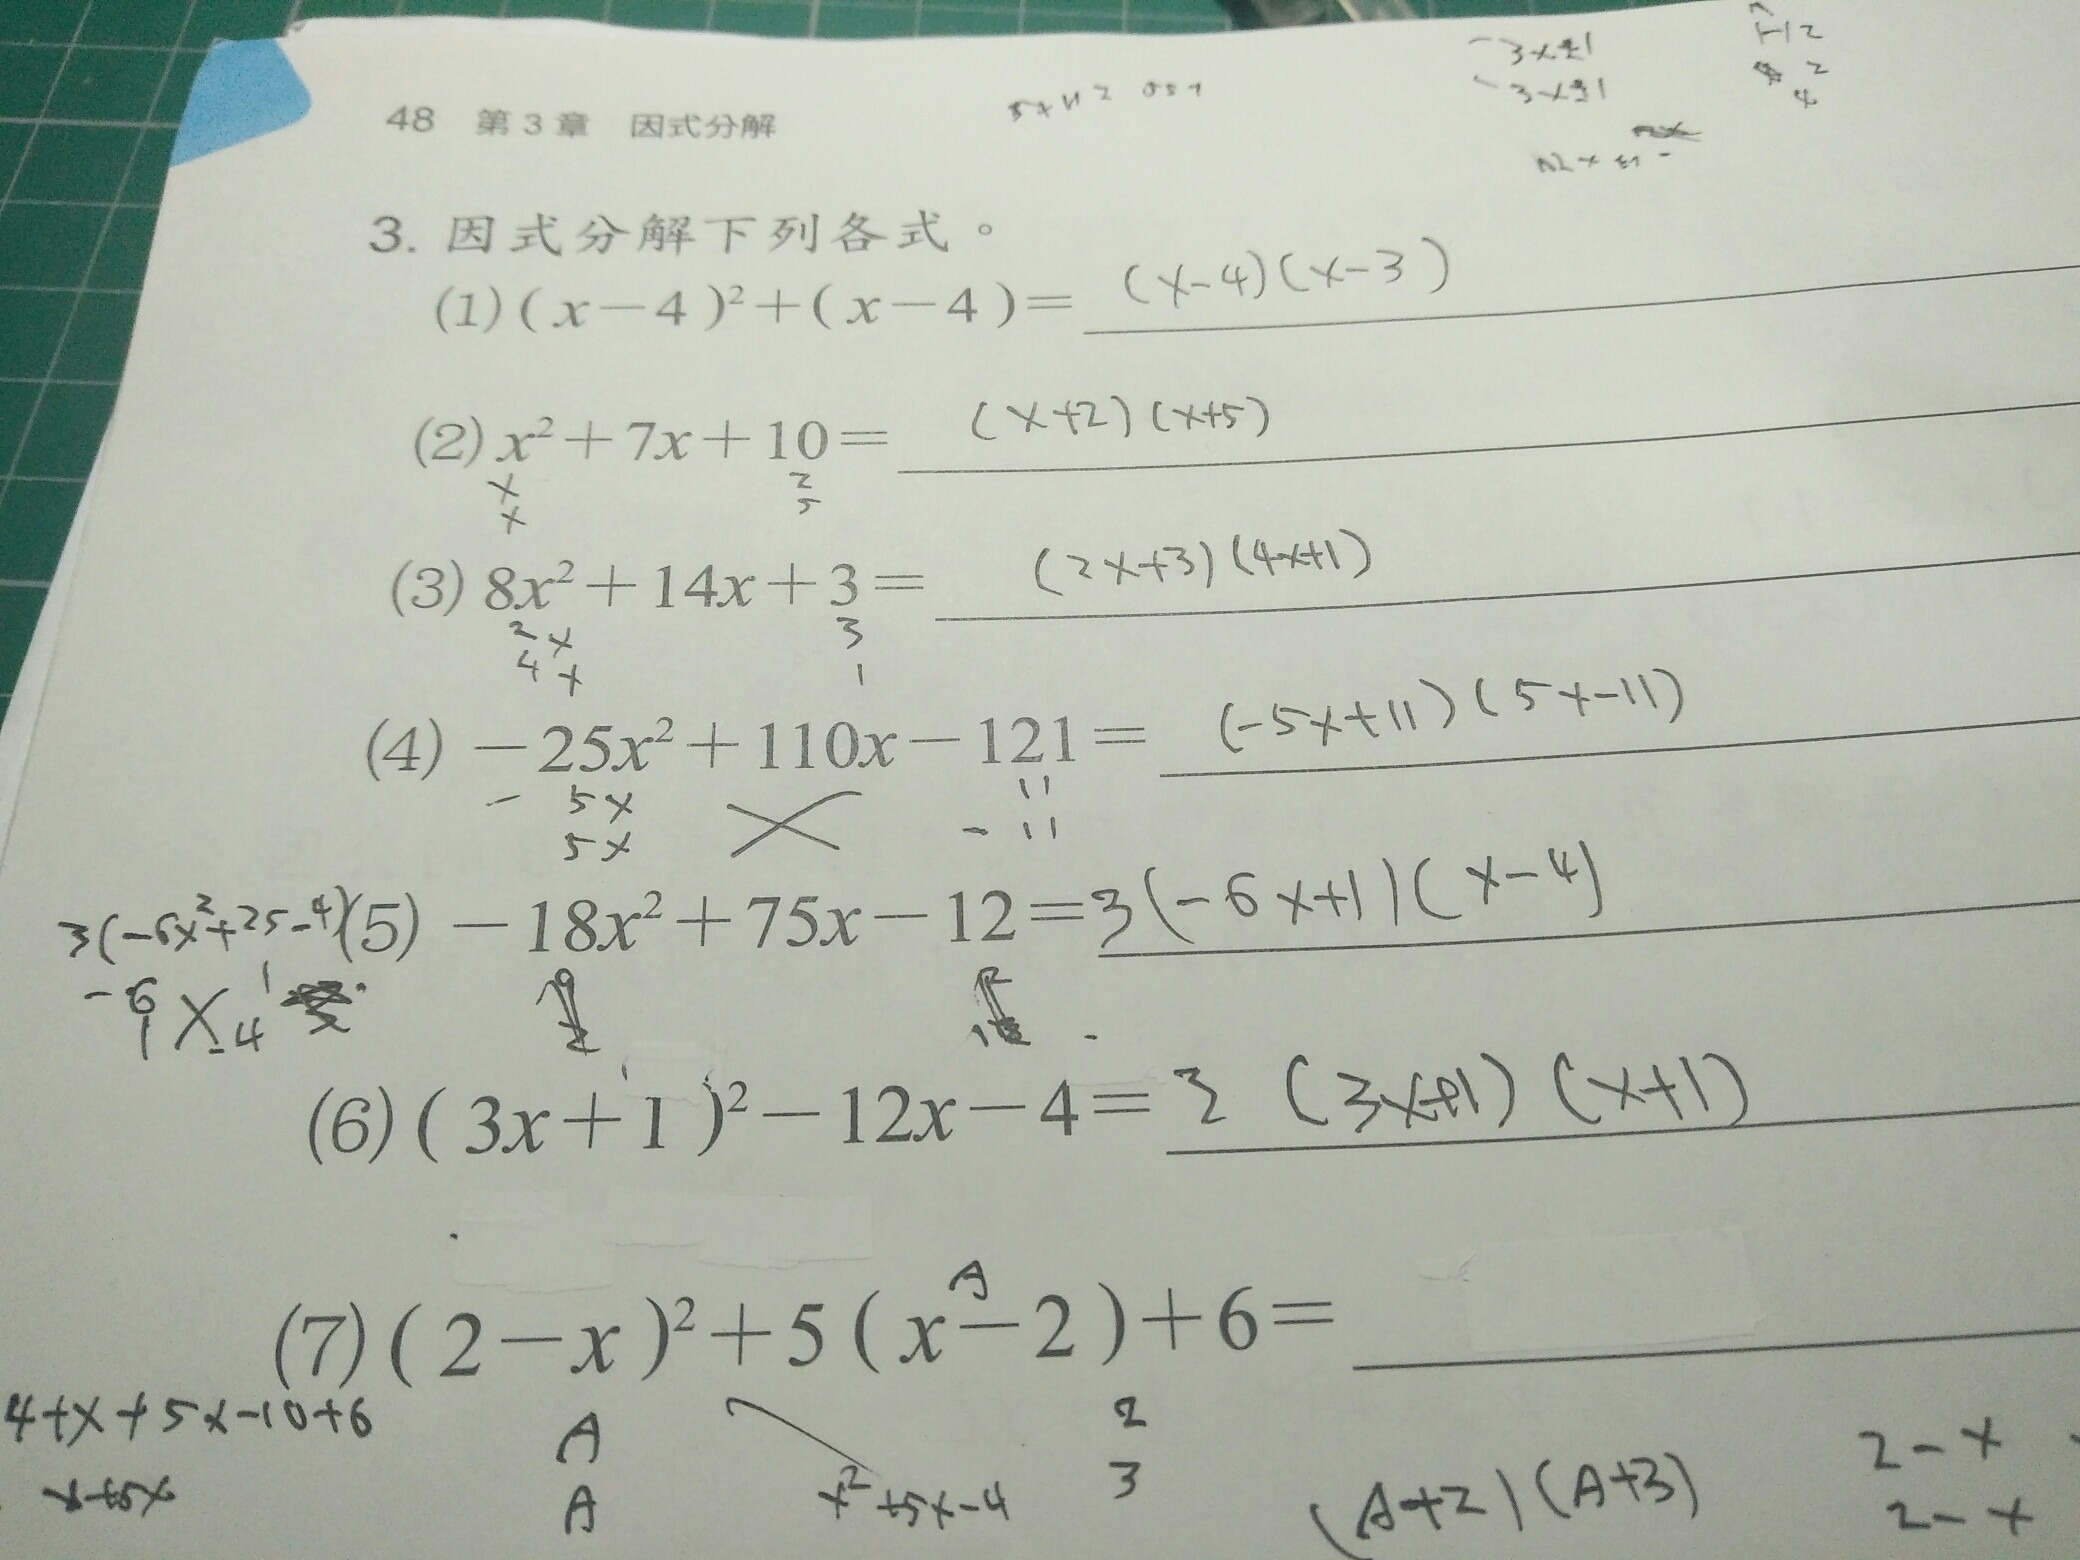 48 第3章 因式分解
3. 因式分解下列各式。
(1)(x－4)²＋(x－4)＝ (x-4)(x-3)
(2) x²＋7x＋10＝ (x+2)(x+5)
x 2
x 5
(3) 8x²＋14x＋3＝ (2x+3)(4x+1)
2x 3
4x 1
(4) －25x²＋110x－121＝ (-5x+11)(5x-11)
- 5x 11
5x -11
3(-6x²+25-4) (5) －18x²＋75x－12＝3(-6x+1)(x-4)
-6 1
1 -4
(6)(3x＋1)²－12x－4＝3 (3x+1)(x+1)
A
(7)(2－x)²＋5(x－2)＋6＝
4+x+5x-10+6 A 2 2-x
A x²+5x-4 3 (A+2)(A+3) 2-x